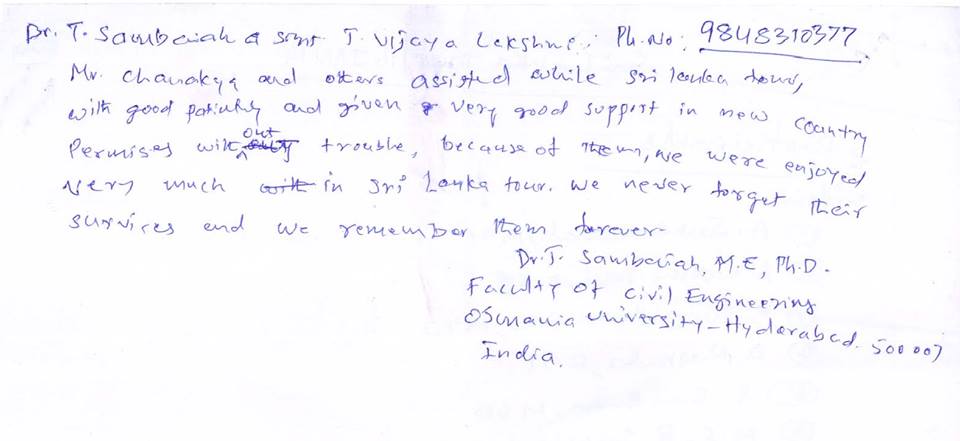 Dr. T. Sambaiah & Smt T. Vijaya Lekshmi: Ph.No: 9848310377
Mr. Chanakya and others assisted while Sri lanka tour,
with good patiently and given very good support in new country
Permises without trouble, because of them, we were enjoyed
very much in Sri Lanka tour. We never forget their
survices and we remember them forever.
Dr.T. Sambaiah, M.E, Ph.D.
Faculty of Civil Engineering
Osmania University-Hyderabad. 500007
India.